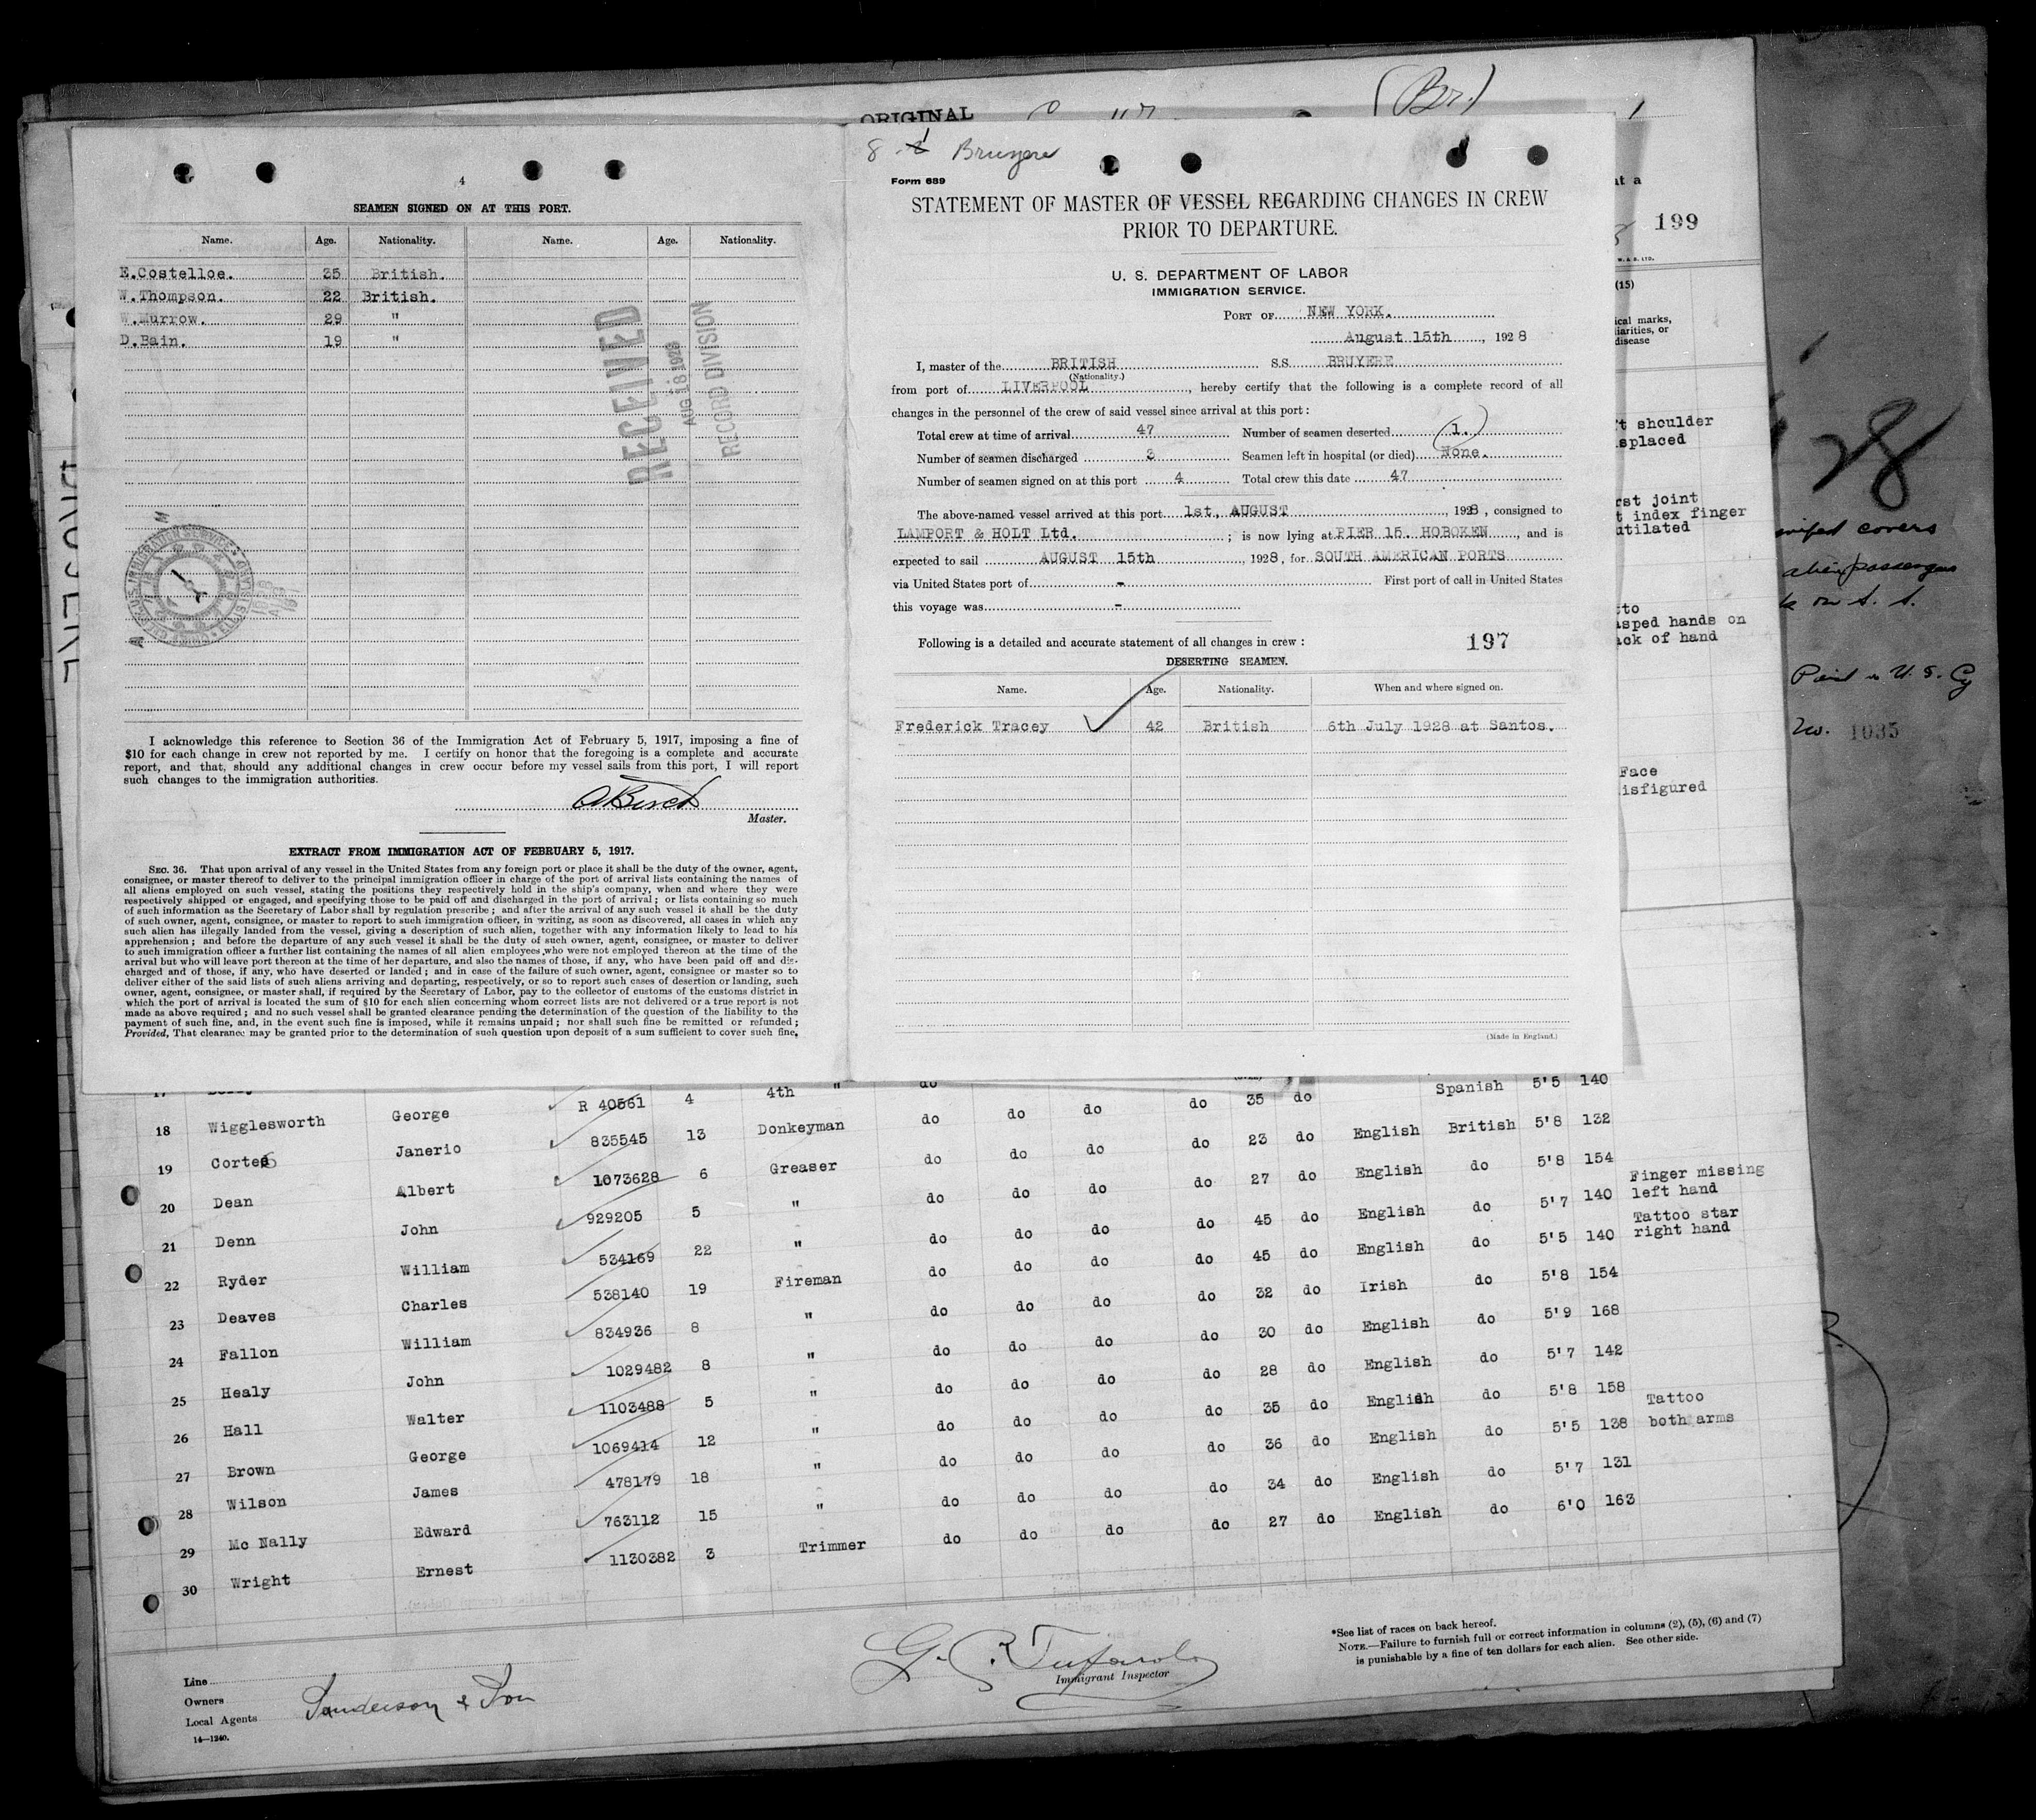 ORIGINAL
(Br.)
4
SEAMEN SIGNED ON AT THIS PORT.
Name. Age. Nationality. Name. Age. Nationality.
E.Costelloe. 35 British.
W.Thompson. 22 British.
W.Murrow. 29 "
D.Bain. 19 "
RECEIVED
AUG 18 1928
RECORD DIVISION
I acknowledge this reference to Section 36 of the Immigration Act of February 5, 1917, imposing a fine of
$10 for each change in crew not reported by me. I certify on honor that the foregoing is a complete and accurate
report, and that, should any additional changes in crew occur before my vessel sails from this port, I will report
such changes to the immigration authorities.
Master.
EXTRACT FROM IMMIGRATION ACT OF FEBRUARY 5, 1917.
SEC. 36. That upon arrival of any vessel in the United States from any foreign port or place it shall be the duty of the owner, agent,
consignee, or master thereof to deliver to the principal immigration officer in charge of the port of arrival lists containing the names of
all aliens employed on such vessel, stating the positions they respectively hold in the ship's company, when and where they were
respectively shipped or engaged, and specifying those to be paid off and discharged in the port of arrival; or lists containing so much
of such information as the Secretary of Labor shall by regulation prescribe; and after the arrival of any such vessel it shall be the duty
of such owner, agent, consignee, or master to report to such immigration officer, in writing, as soon as discovered, all cases in which any
such alien has illegally landed from the vessel, giving a description of such alien, together with any information likely to lead to his
apprehension; and before the departure of any such vessel it shall be the duty of such owner, agent, consignee, or master to deliver
to such immigration officer a further list containing the names of all alien employees who were not employed thereon at the time of the
arrival but who will leave port thereon at the time of her departure, and also the names of those, if any, who have been paid off and dis-
charged and of those, if any, who have deserted or landed; and in case of the failure of such owner, agent, consignee or master so to
deliver either of the said lists of such aliens arriving and departing, respectively, or so to report such cases of desertion or landing, such
owner, agent, consignee, or master shall, if required by the Secretary of Labor, pay to the collector of customs of the customs district in
which the port of arrival is located the sum of $10 for each alien concerning whom correct lists are not delivered or a true report is not
made as above required; and no such vessel shall be granted clearance pending the determination of the question of the liability to the
payment of such fine, and, in the event such fine is imposed, while it remains unpaid; nor shall such fine be remitted or refunded;
Provided, That clearance may be granted prior to the determination of such question upon deposit of a sum sufficient to cover such fine.
8 Bruyere
Form 689
STATEMENT OF MASTER OF VESSEL REGARDING CHANGES IN CREW
PRIOR TO DEPARTURE.
U. S. DEPARTMENT OF LABOR
IMMIGRATION SERVICE.
PORT OF NEW YORK.
August 15th, 1928
I, master of the BRITISH S.S. BRUYERE
(Nationality.)
from port of LIVERPOOL, hereby certify that the following is a complete record of all
changes in the personnel of the crew of said vessel since arrival at this port:
Total crew at time of arrival 47 Number of seamen deserted 1.
Number of seamen discharged 3 Seamen left in hospital (or died) None.
Number of seamen signed on at this port 4 Total crew this date 47
The above-named vessel arrived at this port 1st, AUGUST, 1928, consigned to
LAMPORT & HOLT Ltd.; is now lying at PIER 15. HOBOKEN, and is
expected to sail AUGUST 15th, 1928, for SOUTH AMERICAN PORTS
via United States port of - First port of call in United States
this voyage was -
Following is a detailed and accurate statement of all changes in crew: 197
DESERTING SEAMEN.
Name. Age. Nationality. When and where signed on.
Frederick Tracey 42 British 6th July 1928 at Santos.
(Made in England.)
at a
199
W. & S. LTD.
(15)
ical marks,
liarities, or
disease
ft shoulder
splaced
rst joint
t index finger
utilated
tto
asped hands on
ack of hand
Face
isfigured
28
covers
alien passengers
on S. S.
Paid in U. S. Cy
No. 1035
17 4th " do Spanish 5'5 140
18 Wigglesworth George R 40561 4 Donkeyman do do do do 35 do English British 5'8 132
19 Cortes Janerio 835545 13 Greaser do do do do 23 do English do 5'8 154
20 Dean Albert 1073628 6 " do do do do 27 do English do 5'7 140 Finger missing
left hand
21 Denn John 929205 5 " do do do do 45 do English do 5'5 140 Tattoo star
right hand
22 Ryder William 534169 22 Fireman do do do do 45 do Irish do 5'8 154
23 Deaves Charles 538140 19 " do do do do 32 do English do 5'9 168
24 Fallon William 834936 8 " do do do do 30 do English do 5'7 142
25 Healy John 1029482 8 " do do do do 28 do English do 5'8 158
26 Hall Walter 1103488 5 " do do do do 35 do English do 5'5 138 Tattoo
both arms
27 Brown George 1069414 12 " do do do do 36 do English do 5'7 131
28 Wilson James 478179 18 " do do do do 34 do English do 6'0 163
29 Mc Nally Edward 763112 15 Trimmer do do do do 27 do
30 Wright Ernest 1130382 3
Line
Owners
Local Agents Sanderson & Son
14-1240.
Immigrant Inspector
*See list of races on back hereof.
NOTE.—Failure to furnish full or correct information in columns (2), (5), (6) and (7)
is punishable by a fine of ten dollars for each alien. See other side.